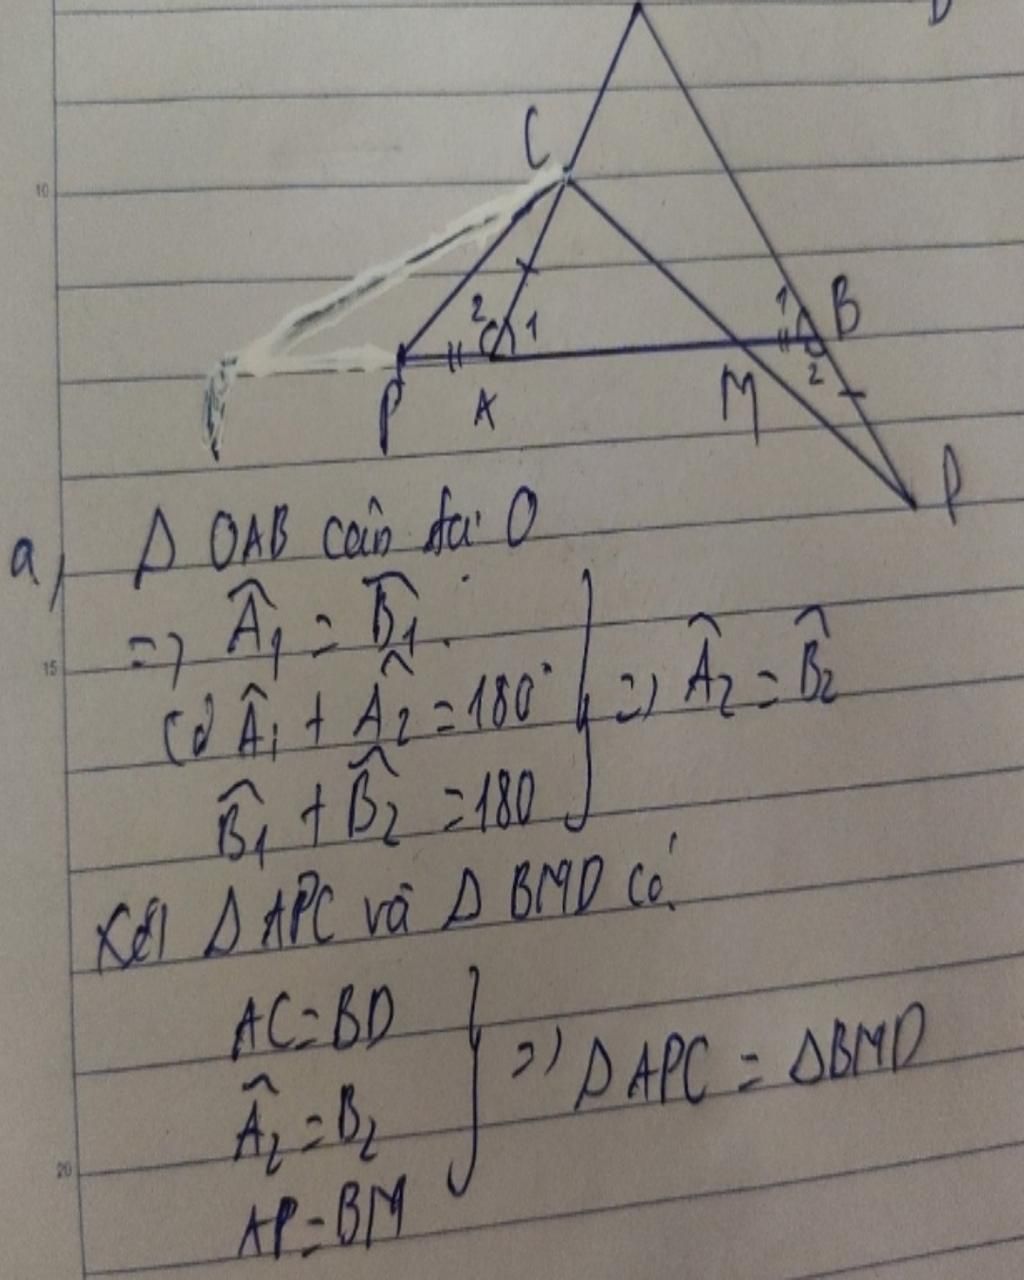 C
2
1
1
B
2
P
A
M
D
a, Δ OAB cân tại O
=> Â₁ = B̂₁
Có Â₁ + Â₂ = 180°
B̂₁ + B̂₂ = 180
} => Â₂ = B̂₂
Xét Δ APC và Δ BMD có
AC = BD
Â₂ = B₂
AP = BM
} => Δ APC = ΔBMD
10
15
20